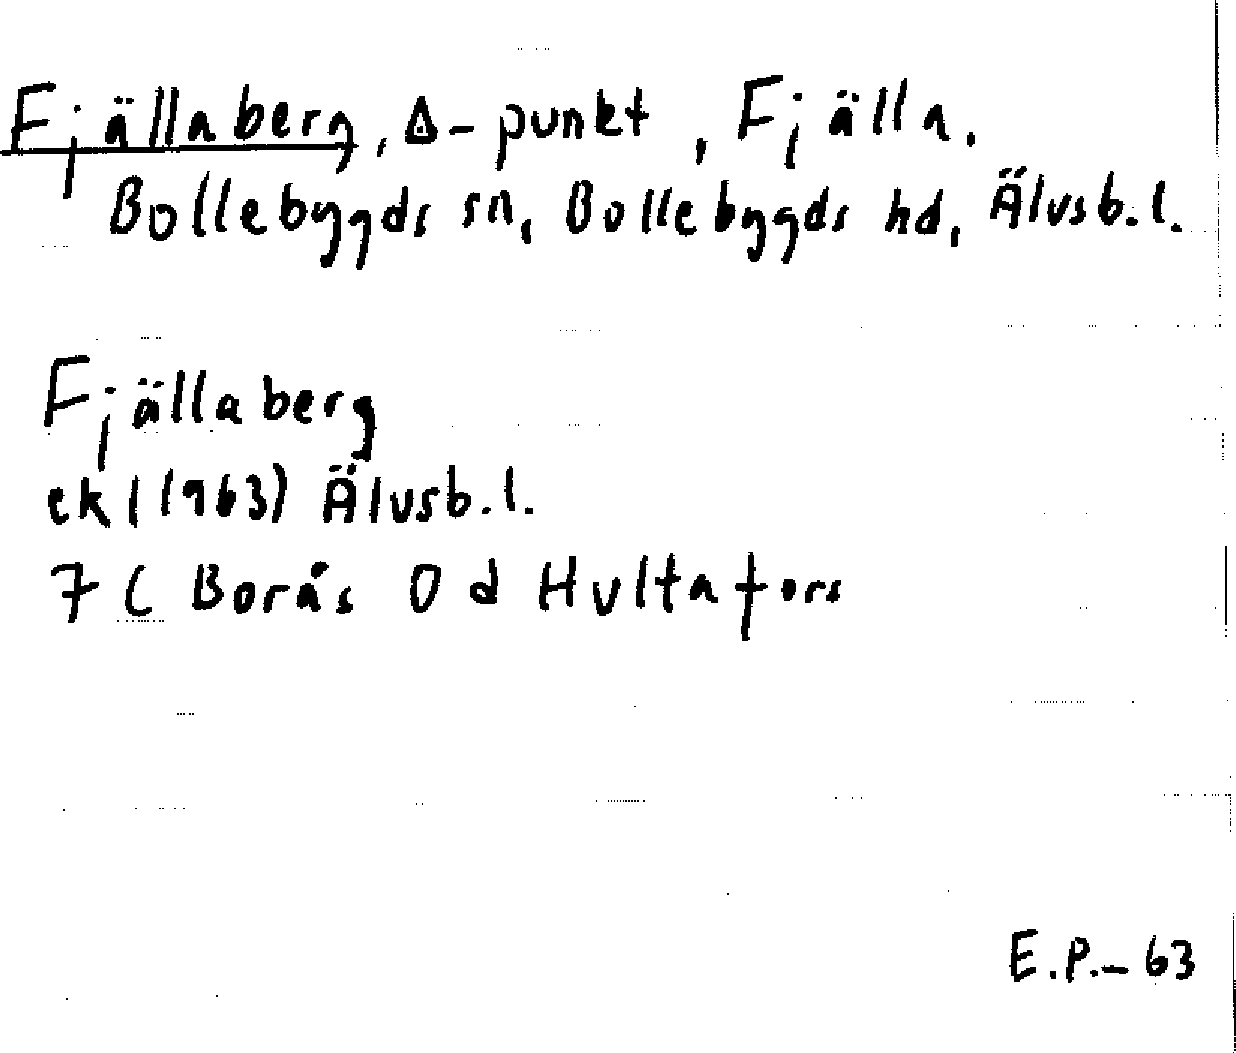 Fjällaberg, ∆-punkt, Fjälla.
Bollebygds sn, Bollebygds hd, Älvsb.l.
Fjällaberg
ek (1963) Älvsb.l.
7 C Borås 0 d Hultafors
E.P.-63